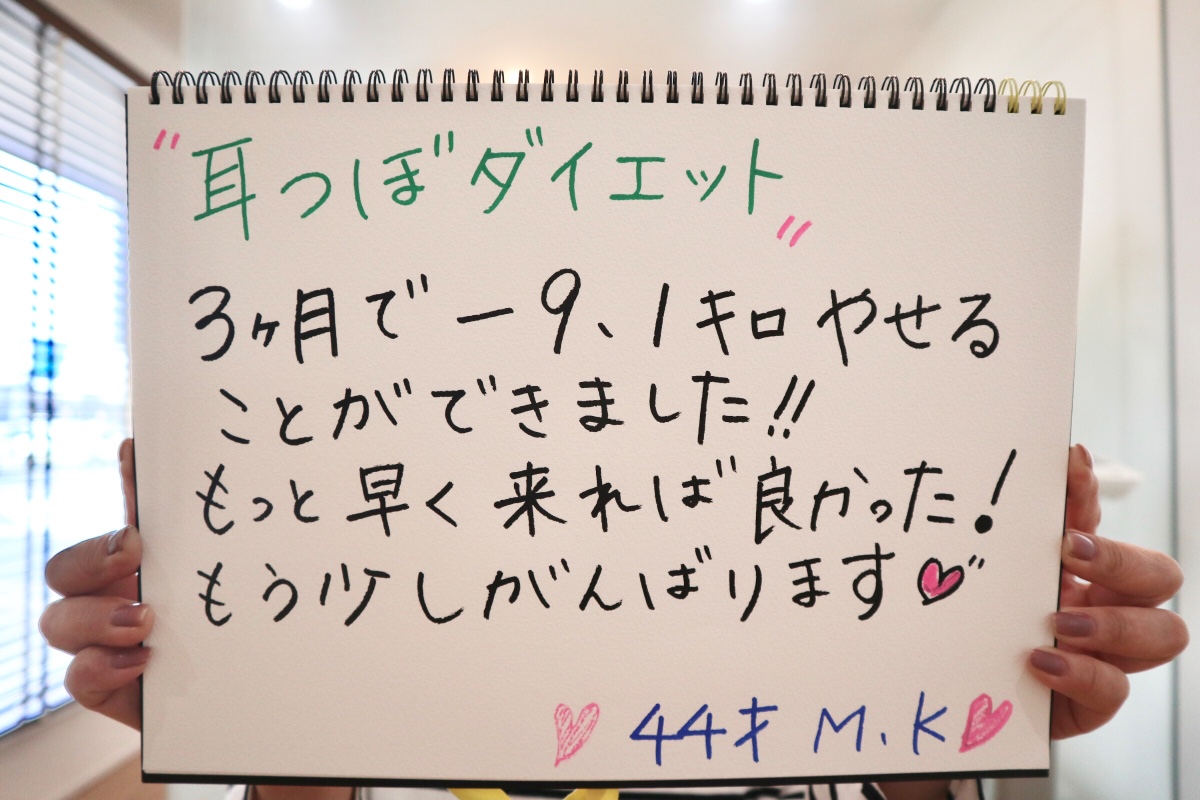 "耳つぼダイエット"
3ヶ月で-9、1キロやせる
ことができました!!
もっと早く来れば良かった!
もう少しがんばります♡
♡44才 M.K♡